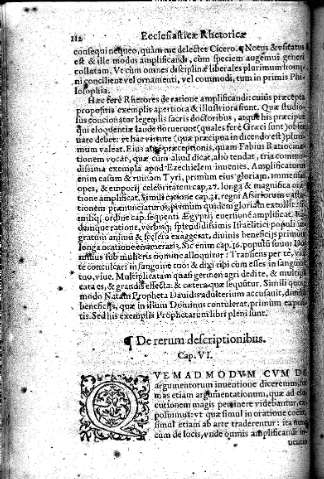 112 Ecclesiasticæ Rhetoricæ
consequi nequeo, quàm me delectet Cicero. ¶ Notus & usitatus
est & ille modus amplificandi, cùm speciem augemus generi
collatam. Vt cùm omnes disciplinæ liberales plurimum homi-
ni concilient vel ornamenti, vel commodi, tum in primis Phi-
losophia.
Hæc ferè Rhetores de ratione amplificandi: cuius præcepta
propositis exemplis apertiora & illustriora sunt. Quæ studio-
sus concionator legendis sacris doctoribus, atque his præcipuè
qui eloquentiæ laude floruerunt (quales ferè Græci sunt) obser-
uare debet: vt hac virtute (quæ præcipua in dicendo est) pluri-
mum valeat. Eius
tionem vocat, quæ cùm aliud dicat, aliò tendat, tria commo-
dissima exempla apud Ezechielem inuenies. Amplificaturus
enim casum & ruinam Tyri, primùm eius gloriam, immensas
opes, & emporij celebritatem cap. 27. longa & magnifica ora
tione amplificat. Simili ratione cap. 31. regni Assyriorum
tionem prænunciaturus, primùm quidem gloriam extollit.
ordine cap. sequenti Ægypti euersionem amplificat.
ratione, verbisq́; splendidissimis Israelitici populi in-
gratum animum & scelera exaggerat, diuinis beneficijs primùm
longa oratione enumeratis. Sic enim cap. 16. populum suum Do-
minus sub mulieris nomine alloquitur: Transiens per te, vidi
te conculcari in sanguine tuo: & dixi tibi cùm esses in sanguine
tuo, viue. Multiplicatam quasi germen agri dedite, & multipli-
cata es, & grandis effecta: & cætera quæ sequuntur. Simili quoque
modo Natam Propheta Dauidis adulterium accusauit, diuinis
beneficijs, quæ in illum Dominus contulerat, primùm exposi-
tis. Sed his exemplis Prophetarum libri pleni sunt.
¶ De rerum descriptionibus.
Cap. VI.
QVEMADMODVM CVM DE
argumentorum inuentione diceremus, for-
mas etiam argumentationum, quæ ad elo-
cutionem magis pertinere videbantur, ex-
posuimus: vt quæ simul in oratione
simul etiam ab arte traderentur: ita nunc
cùm de locis, vnde omnis amplificandi in-
uentio